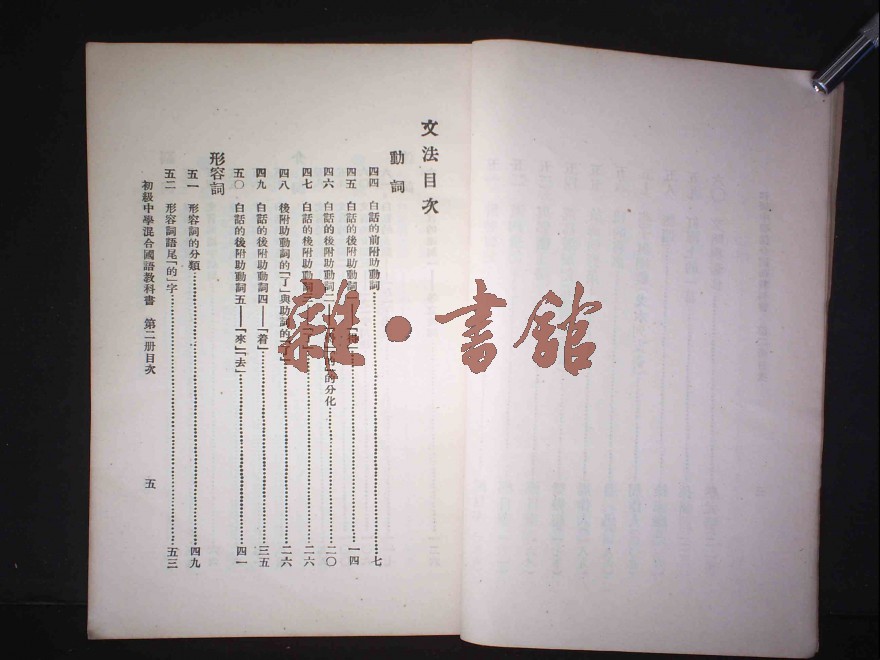 文法目次
動詞
四四 白話的前附助動詞 七
四五 白話的後附助動詞一 一四
四六 白話的後附助動詞二 的分化 二〇
四七 白話的後附助動詞三 二六
四八 後附助動詞的「了」與助詞的「了」 二六
四九 白話的後附助動詞四——「着」 三五
五〇 白話的後附助動詞五——「來」「去」 四一
形容詞
五一 形容詞的分類 四九
五二 形容詞語尾「的」字 五三
初級中學混合國語教科書 第二册目次 五
雜·書館